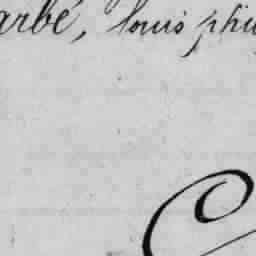 arbé, louis phi